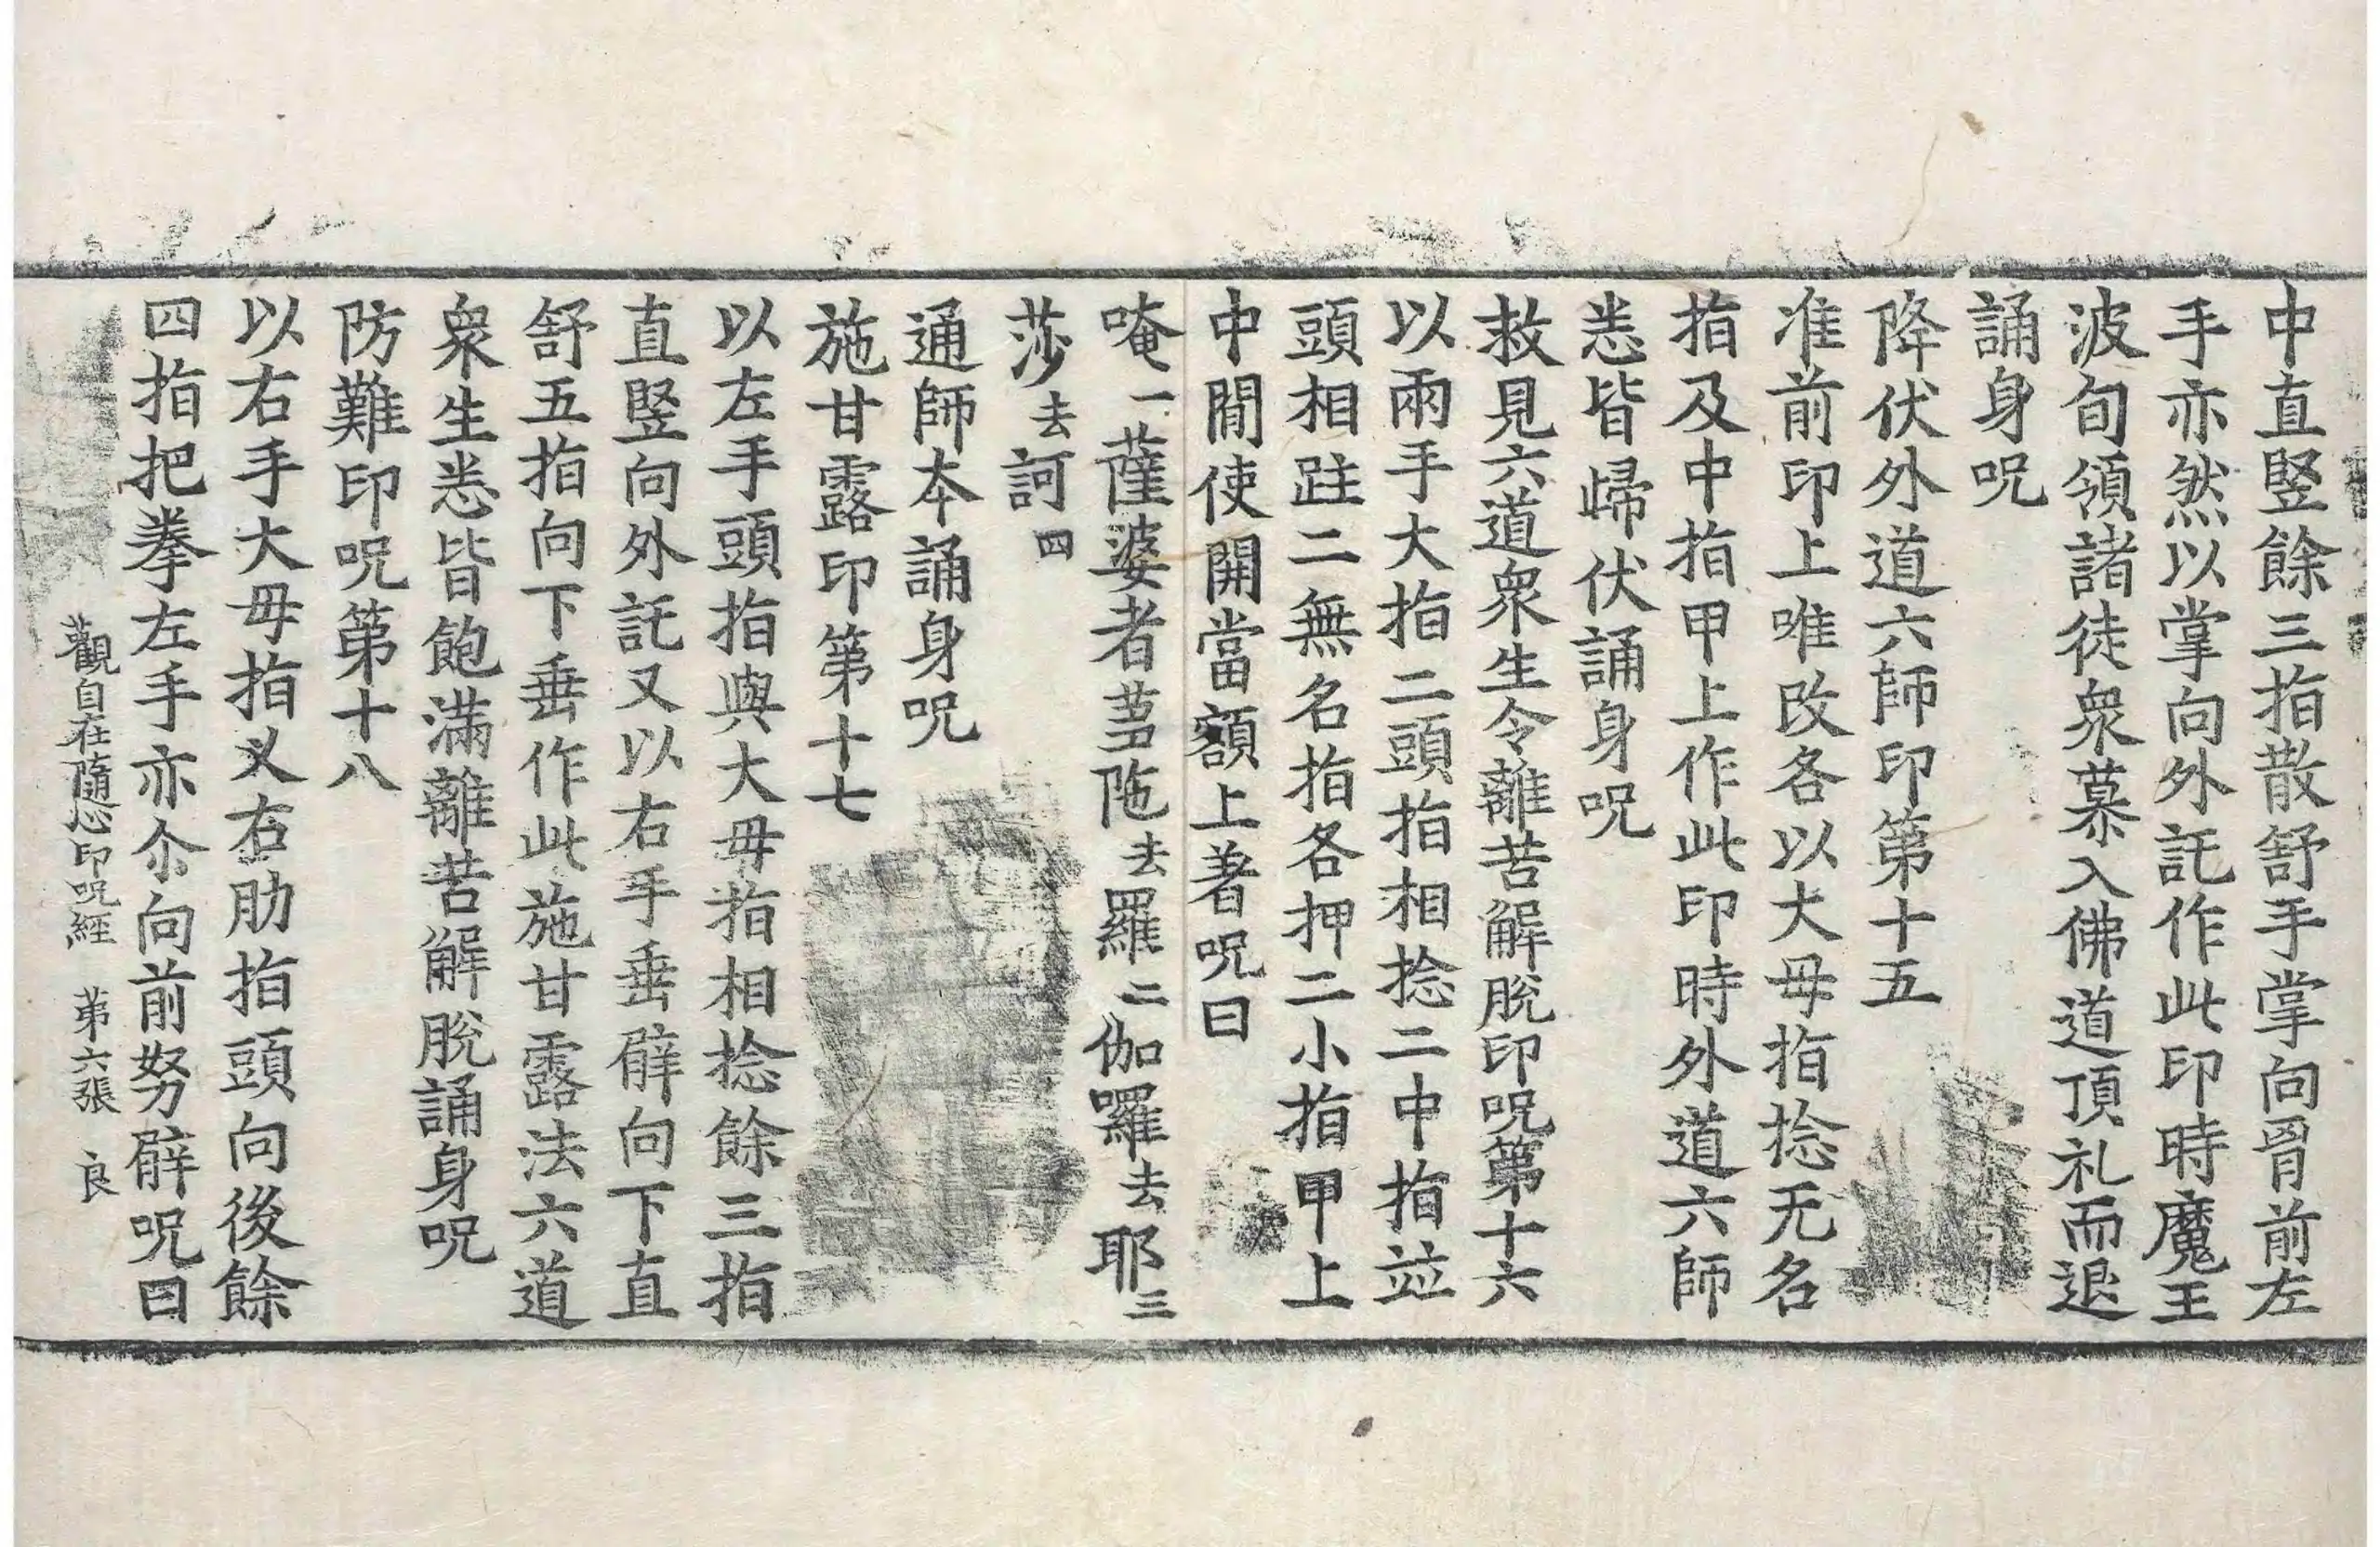 中直竪餘三指散舒手掌向胷前左
手亦然以掌向外託作此印時魔王
波旬領諸徒衆慕入佛道頂礼而退
誦身呪
降伏外道六師印第十五
准前印上唯改各以大母指捻无名
指及中指甲上作此印時外道六師
悉皆歸伏誦身呪
救見六道衆生令離苦解脫印呪第十六
以兩手大指二頭指相捻二中指並
頭相跓二無名指各押二小指甲上
中閒使開當額上著呪曰
唵一薩婆者蒭陁去羅二伽囉去耶三
莎去訶四
通師本誦身呪
施甘露印第十七
以左手頭指與大母指相捻餘三指
直竪向外託又以右手垂臂向下直
舒五指向下垂作此施甘露法六道
衆生悉皆飽滿離苦解脫誦身呪
防難印呪第十八
以右手大母指叉右肋指頭向後餘
四指把拳左手亦尒向前努臂呪曰
觀自在隨心印呪經 第六張 良